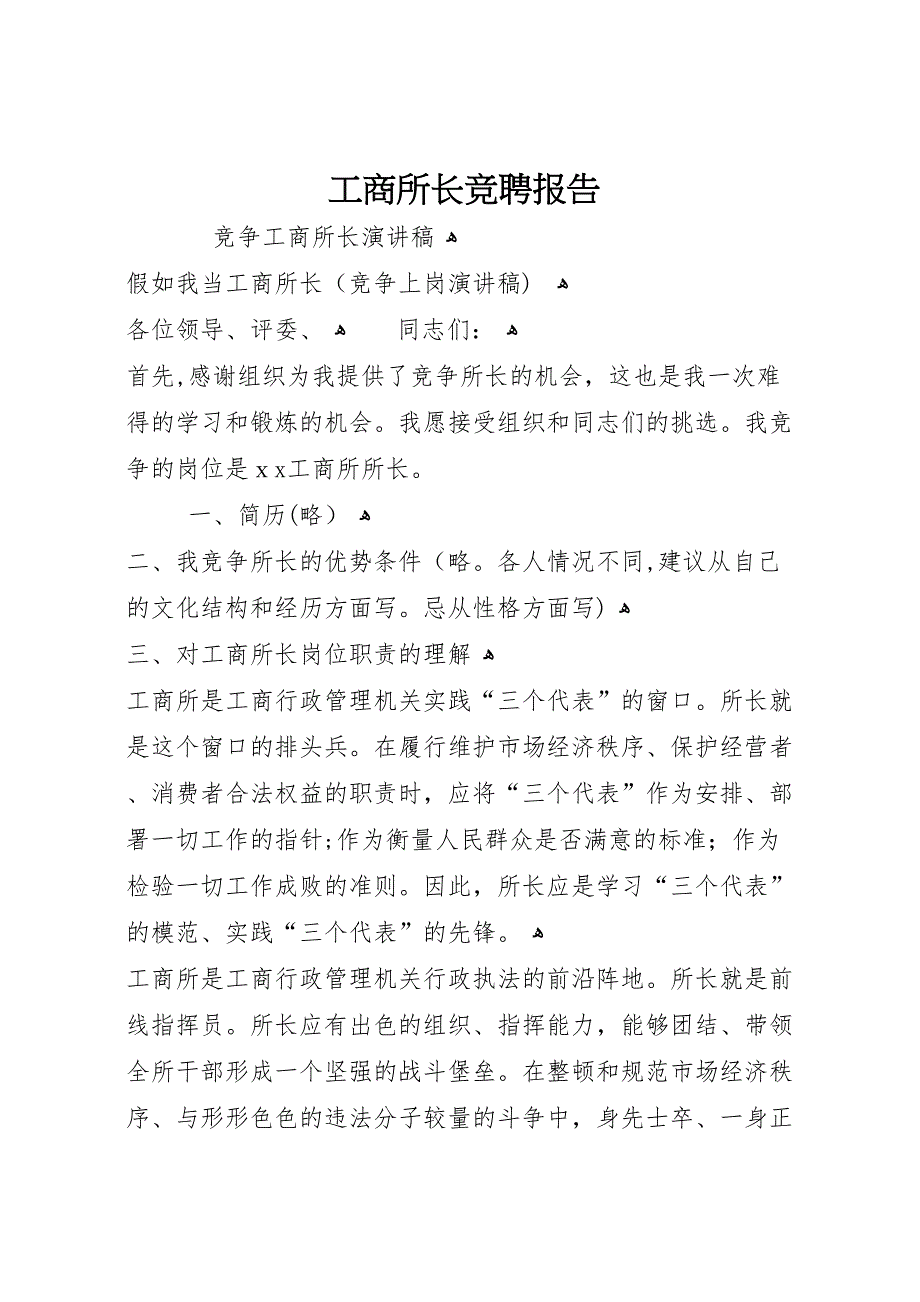 工商所长竞聘报告
竞争工商所长演讲稿 ﻫ
假如我当工商所长（竞争上岗演讲稿) ﻫ
各位领导、评委、 ﻫ 同志们： ﻫ
首先,感谢组织为我提供了竞争所长的机会，这也是我一次难
得的学习和锻炼的机会。我愿接受组织和同志们的挑选。我竞
争的岗位是ｘx工商所所长。
一、简历(略） ﻫ
二、我竞争所长的优势条件（略。各人情况不同,建议从自己
的文化结构和经历方面写。忌从性格方面写) ﻫ
三、对工商所长岗位职责的理解 ﻫ
工商所是工商行政管理机关实践“三个代表”的窗口。所长就
是这个窗口的排头兵。在履行维护市场经济秩序、保护经营者
、消费者合法权益的职责时，应将“三个代表”作为安排、部
署一切工作的指针;作为衡量人民群众是否满意的标准；作为
检验一切工作成败的准则。因此，所长应是学习“三个代表”
的模范、实践“三个代表”的先锋。 ﻫ
工商所是工商行政管理机关行政执法的前沿阵地。所长就是前
线指挥员。所长应有出色的组织、指挥能力，能够团结、带领
全所干部形成一个坚强的战斗堡垒。在整顿和规范市场经济秩
序、与形形色色的违法分子较量的斗争中，身先士卒、一身正